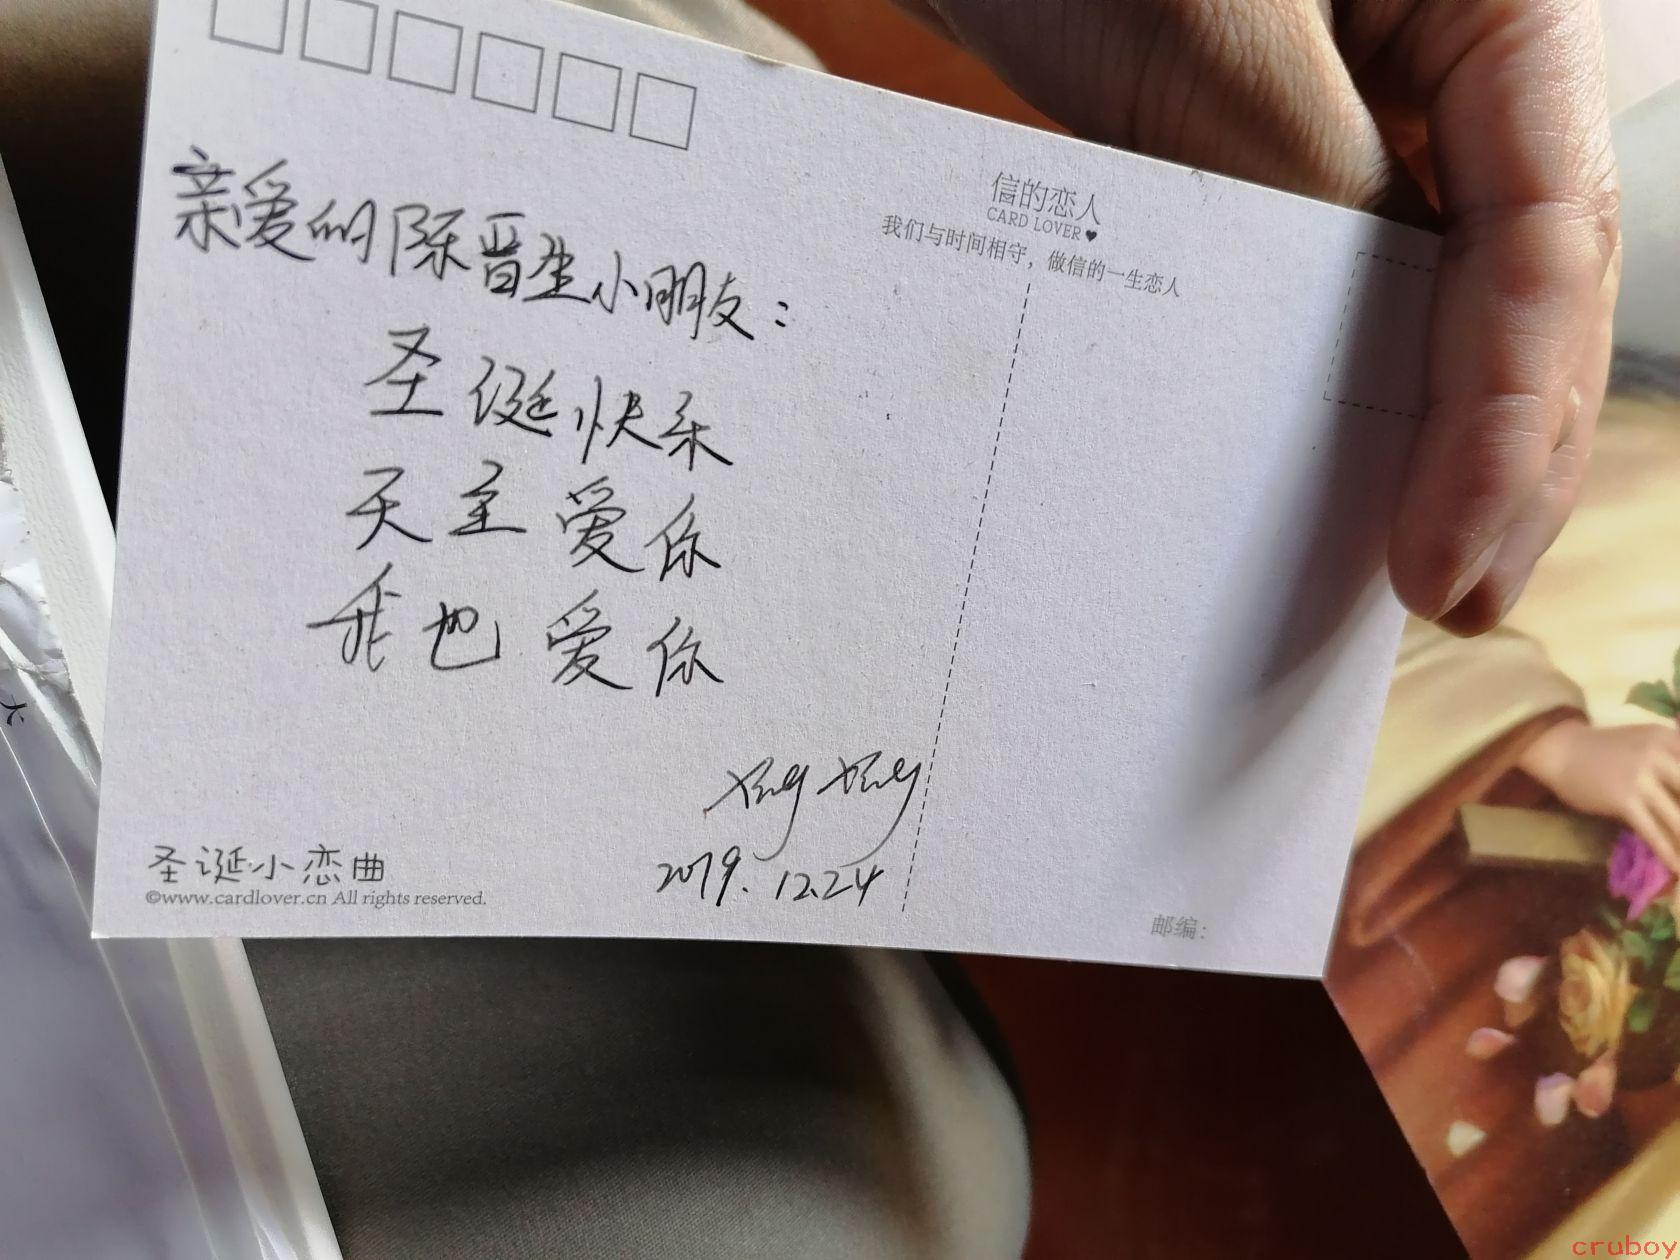 亲爱的陈晋生小朋友：
圣诞快乐
天主爱你
我也爱你
2019.12.24
圣诞小恋曲
©www.cardlover.cn All rights reserved.
信的恋人
CARD LOVER♥
我们与时间相守，做信的一生恋人
邮编：
cruboy